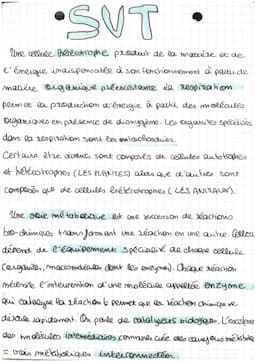 SVT
Une cellule hétérotrophe produit de la matière et de
l'énergie indispensable à son fonctionnement à partir de
matière organique préexistante. La respiration
permet la production d'énergie à partir des molécules
organiques en présence de dioxygène. Les organites spécialisés
dans la respiration sont les mitochondries.
Certains être vivants sont composés de cellules autotrophes
et hétérotrophes (LES PLANTES) alors que d'autres sont
composés que de cellules hétérotrophes (LES ANIMAUX).
Une voie métabolique est une succession de réactions
bio-chimiques transformant une réaction en une autre. Celles
dépend de l'équipement spécialisé de chaque cellule
(organites, macromolécules dont les enzymes). Chaque réaction
nécessite l'intervention d'une molécule appelée enzyme
qui catalyse la réaction & permet que la réaction chimique se
déroule rapidement. On parle de catalyseurs biologiques. L'
des molécules intermédiaires communes crée des
= voies métaboliques interconnectées.